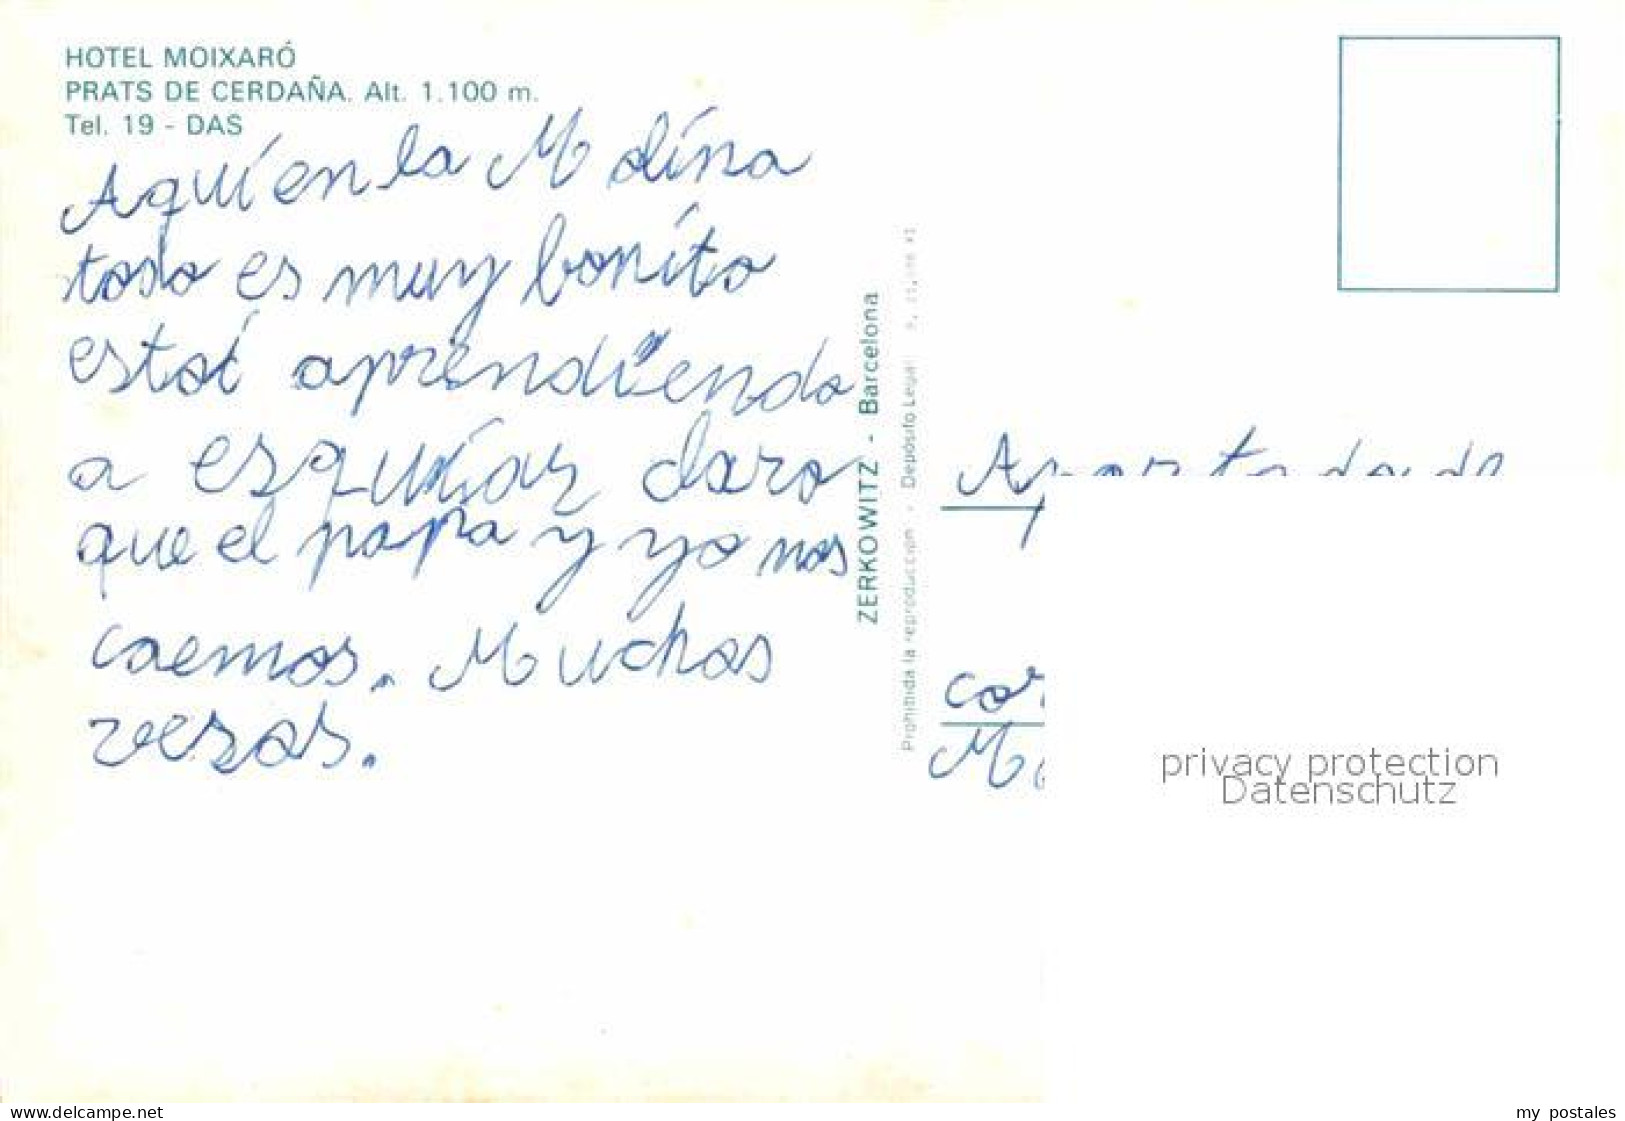 HOTEL MOIXARÓ
PRATS DE CERDAÑA. Alt. 1.100 m.
Tel. 19 - DAS
Aquí en la Molína
todo es muy boníto
estoí aprendíendo
a ezquíar claro
que el papa y yo nos
caemos. Muchos
vesos.
ZERKOWITZ - Barcelona
Prohibida la reproducción - Depósito Legal
privacy protection
Datenschutz
www.delcampe.net
my postales